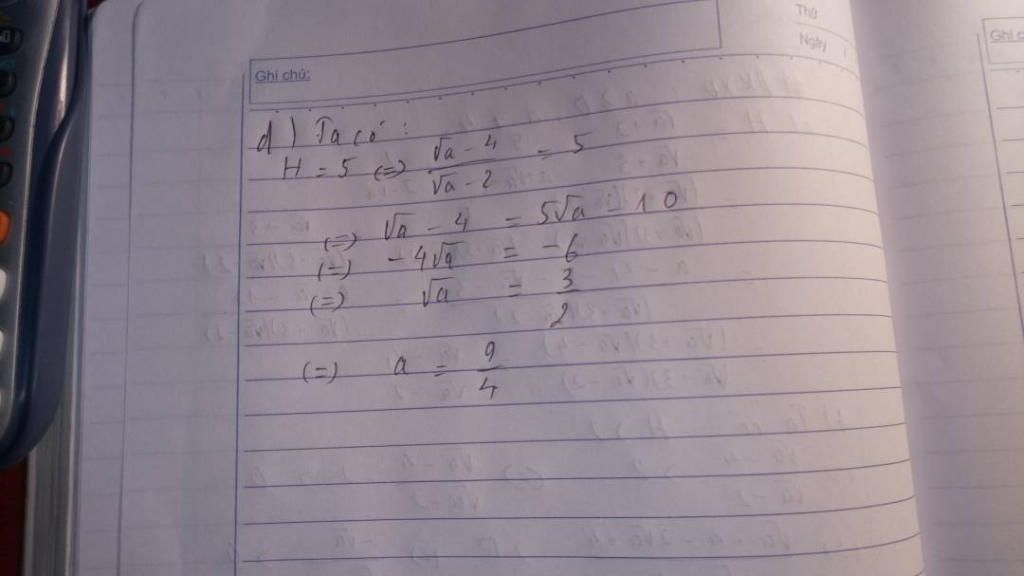 Thứ
Ngày
Ghi chú:
d) Ta có:
H = 5 (=) √a - 4 / √a - 2 = 5
(=) √a - 4 = 5√a - 10
(=) - 4√a = - 6
(=) √a = 3 / 2
(=) a = 9 / 4